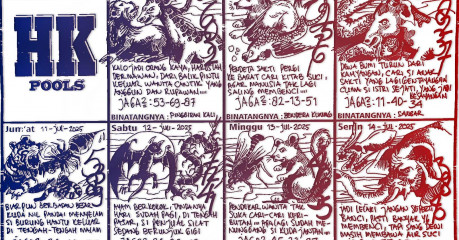 HK
POOLS
KALO JADI ORANG KAYA, HARUSLAH
DERMAWAN, DARI BALIK PINTU
KELUAR WANITA CANTIK YANG
ANGGUN DAN RUPAWAN...
JAGA²: 53-69-87
BINATANGNYA: PINGGIRAN KALI
PENDETA SAKTI PERGI
KE BARAT CARI KITAB SUCI,
AGAR MANUSIA TAK LAGI
SALING MEMBENCI
JAGA²: 82-13-51
BINATANGNYA: BENDERA KUNING
DEWA BUMI TURUN DARI
KAHYANGAN, CARI SI ANAK
SAKTI YANG LAGI GENTAYANGAN
CUMA SI ISTRI SEJATI, YANG JADI
KESAYANGAN
JAGA²: 11-40-34
BINATANGNYA: SADAR
Jum'at 11-JUL-2025
BIARPUN BERBADAN BESAR
KUDA NIL PANDAI MENYELAM
SI BURUNG HANTU KELUAR
DI TENGAH-TENGAH MALAM
Sabtu 12-JUL-2025
AYAM BERKOKOK, TANDANYA
HARI SUDAH PAGI, DI TENGAH
PASAR, SI PENJUAL SILAT
SEDANG BERUNJUK GIGI
Minggu 13-JUL-2025
PENDEKAR WANITA TAK
SUKA CARI-CARI KERI-
BUTAN, PERGI LAGI SUDAH ME-
NUNGGANG SI KUDA JANTAN
Senin 14-JUL-2025
JADI LELAKI JANGAN SEPERTI
BANCI, PASTI BANYAK YG
MEMBENCI, TAPI SANG DEWI
MASIH MEMBAWA AIR SUCI